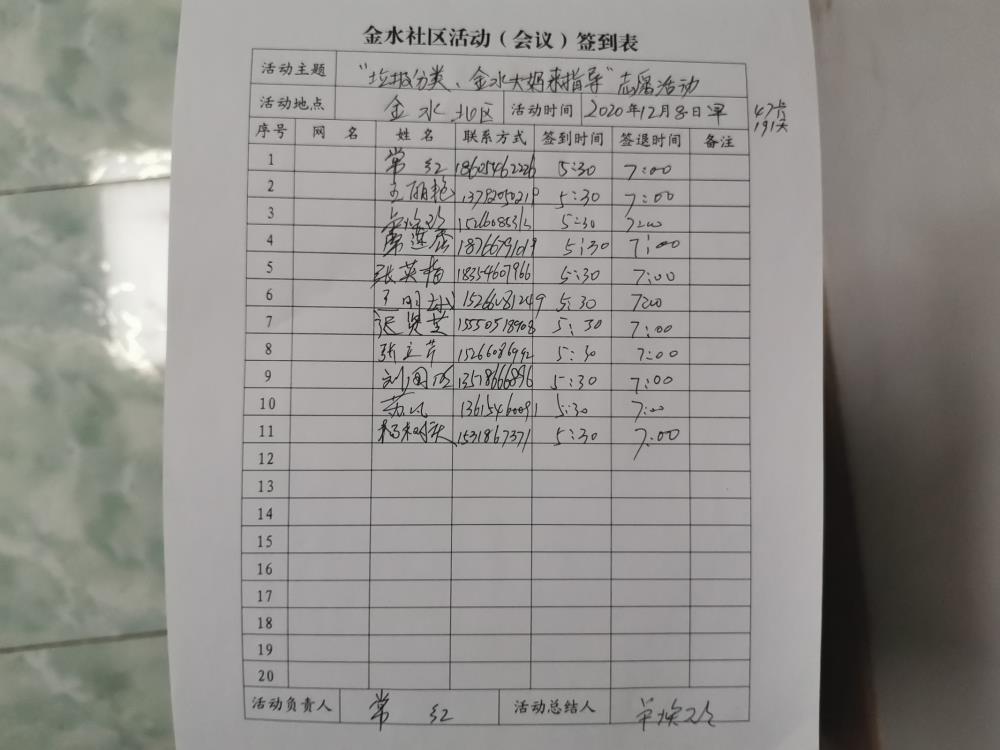 金水社区活动(会议)签到表
活动主题 "垃圾分类、金水大妈来指导"志愿活动
活动地点 金水北区 活动时间 2020年12月8日早
序号 网 名 姓 名 联系方式 签到时间 签退时间 备注
1 常红 18605462226 5:30 7:00
2 王丽艳 5:30 7:00
3 5:30 7:00
4 5:30 7:00
5 张英梅 18354607966 5:30 7:00
6 15266081249 5:30 7:00
7 迟贤芝 15550518908 5:30 7:00
8 张立芹 15266086992 5:30 7:00
9 13518666896 5:30 7:00
10 5:30 7:00
11 5:30 7:00
12
13
14
15
16
17
18
19
20
活动负责人 常红 活动总结人